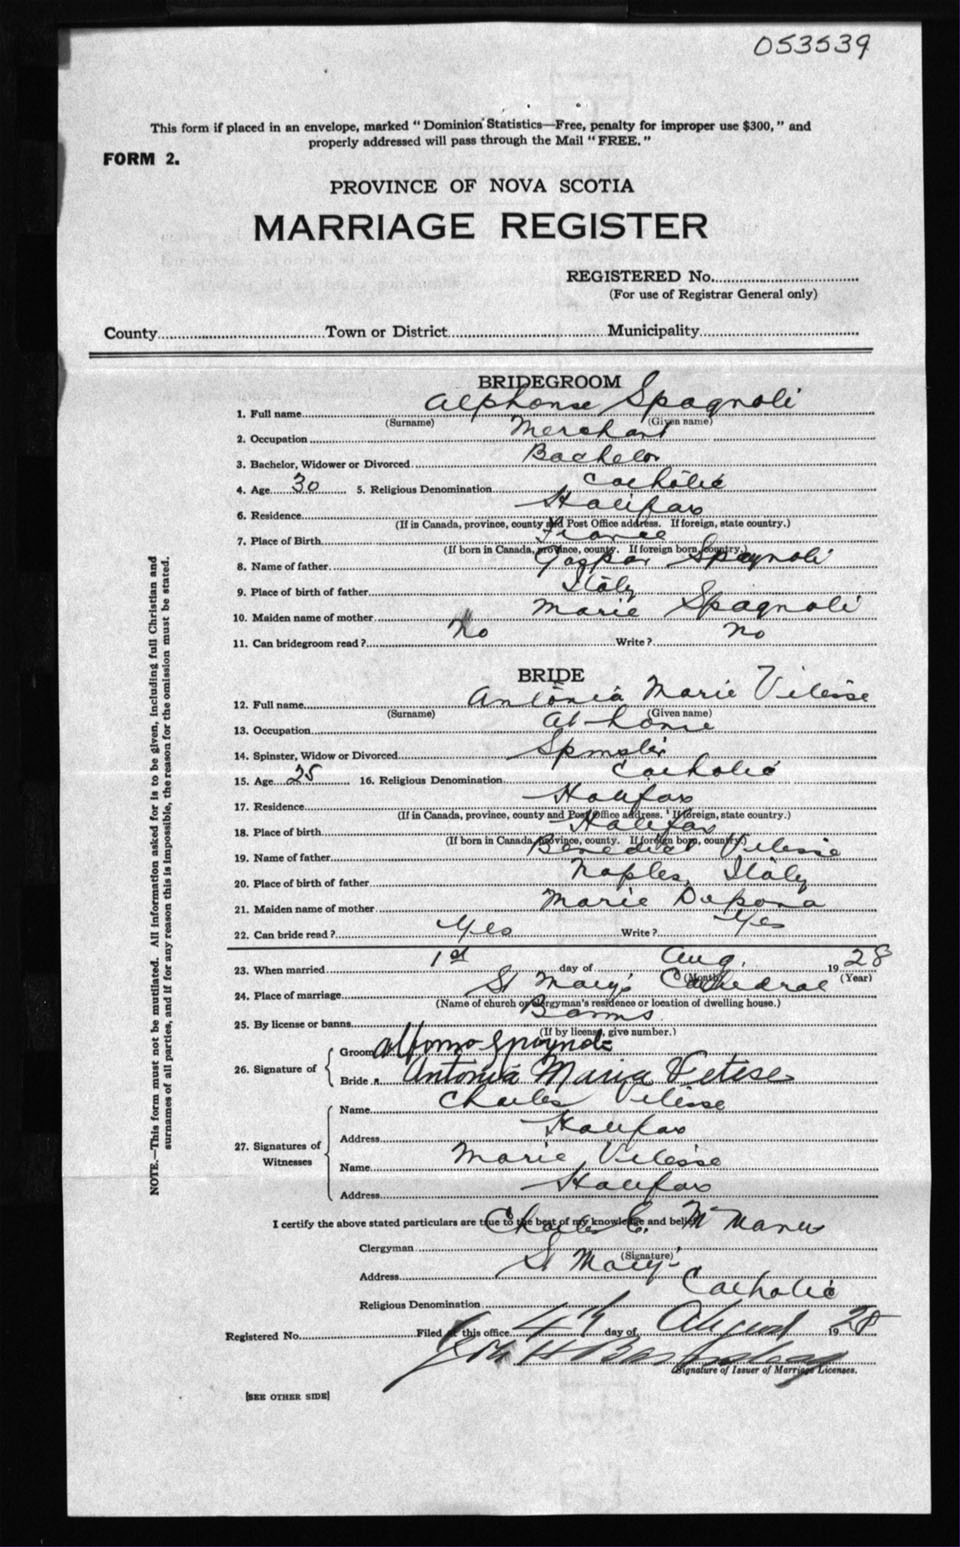 053539
This form if placed in an envelope, marked "Dominion Statistics—Free, penalty for improper use $300," and
properly addressed will pass through the Mail "FREE."
FORM 2.
PROVINCE OF NOVA SCOTIA
MARRIAGE REGISTER
REGISTERED No.
(For use of Registrar General only)
County Town or District Municipality
BRIDEGROOM
1. Full name Alphonse Spagnoli
(Surname) (Given name)
2. Occupation Merchant
3. Bachelor, Widower or Divorced Bachelor
4. Age 30 5. Religious Denomination Catholic
6. Residence Halifax
(If in Canada, province, county and Post Office address. If foreign, state country.)
7. Place of Birth France
(If born in Canada, province, county. If foreign born, country.)
8. Name of father Gaspar Spagnoli
9. Place of birth of father Italy
10. Maiden name of mother Marie Spagnoli
11. Can bridegroom read? No Write? No
BRIDE
12. Full name Antonia Marie Vitesse
(Surname) (Given name)
13. Occupation At home
14. Spinster, Widow or Divorced Spinster
15. Age 25 16. Religious Denomination Catholic
17. Residence Halifax
(If in Canada, province, county and Post Office address. If foreign, state country.)
18. Place of birth Halifax
(If born in Canada, province, county. If foreign born, country.)
19. Name of father Benedict Vitesse
20. Place of birth of father Naples, Italy
21. Maiden name of mother Marie
22. Can bride read? Yes Write? Yes
23. When married 1st day of Aug. 1928
(Month) (Year)
24. Place of marriage St Mary's Cathedral
(Name of church or clergyman's residence or location of dwelling house.)
25. By license or banns Banns
(If by license, give number.)
26. Signature of
Groom
Bride Antonia Maria Vetese
27. Signatures of
Witnesses
Name Charles Vitesse
Address Halifax
Name Marie Vitesse
Address Halifax
I certify the above stated particulars are true to the best of my knowledge and belief.
Clergyman Charles E. McManus
(Signature)
Address St Mary's
Religious Denomination Catholic
Registered No. Filed at this office 4th day of August 1928
Signature of Issuer of Marriage Licenses.
[SEE OTHER SIDE]
NOTE.—This form must not be mutilated. All information asked for is to be given, including full Christian and
surnames of all parties, and if for any reason this is impossible, the reason for the omission must be stated.